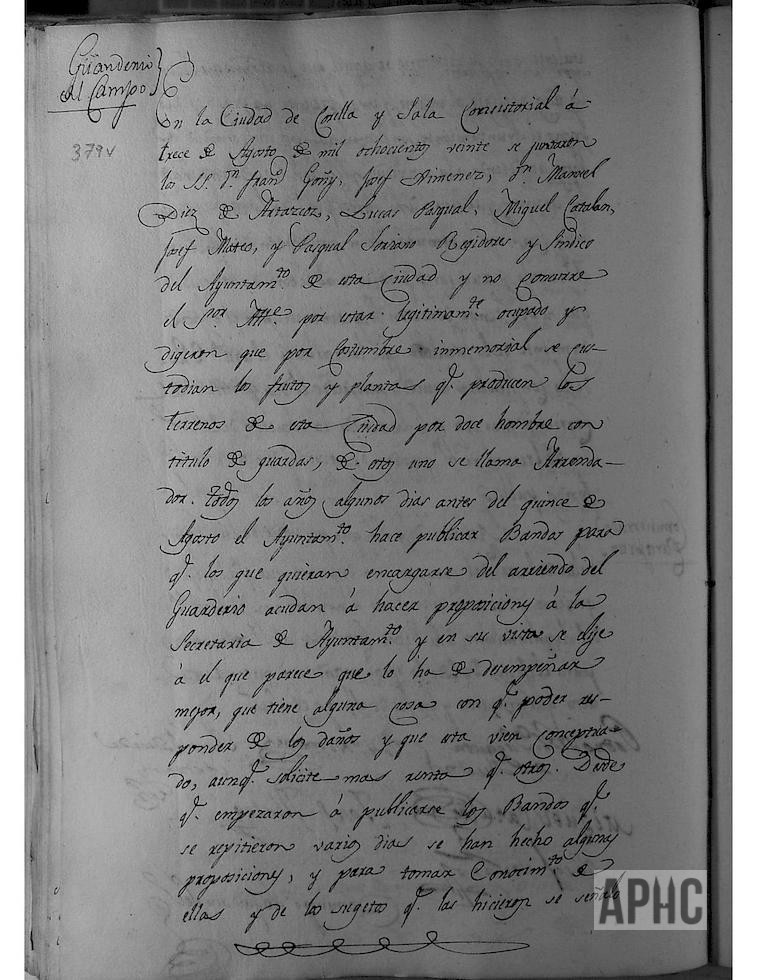 Guarderio
del Campo
379v
En la Ciudad de Corella y Sala Consistorial á
trece de Agosto de mil ochocientos veinte se juntaron
los SS. Dn. Franco Goñy, Josef Ximenez, Dn. Manuel
Diez de Artazcoz, Lucas Pasqual, Miguel Catalan,
Josef Mateo, y Pasqual Soriano Regidores y Sindico
del Ayuntamto. de esta Ciudad y no concurre
el Sor. Alle. por estar legitimamte. ocupado y
digeron que por costumbre inmemorial se cus-
todian los frutos y plantas q. producen los
terrenos de esta Ciudad por doce hombre con
titulo de guardas, de otos uno se llama Arrenda-
dor. todos los años algunos dias antes del quince de
Agosto el Ayuntamto. hace publicar Bandos para
q. los que quieran encargarse del arriendo del
Guarderio acudan á hacer proposiciones á la
Secretaria de Ayuntamto. y en su vista se elije
á el que parece que lo ha de desempeñar
mejor, que tiene alguna cosa con q. poder res-
ponder de los daños y que esta vien conceptua-
do, aunq. solicite mas renta q. otros. Desde
q. empezaron á publicarse los Bandos q.
se repitieron varios dias se han hecho algunas
proposiciones, y para tomar Conocimto. de
ellas y de los sugetos q. las hicieron se señaló
APHC